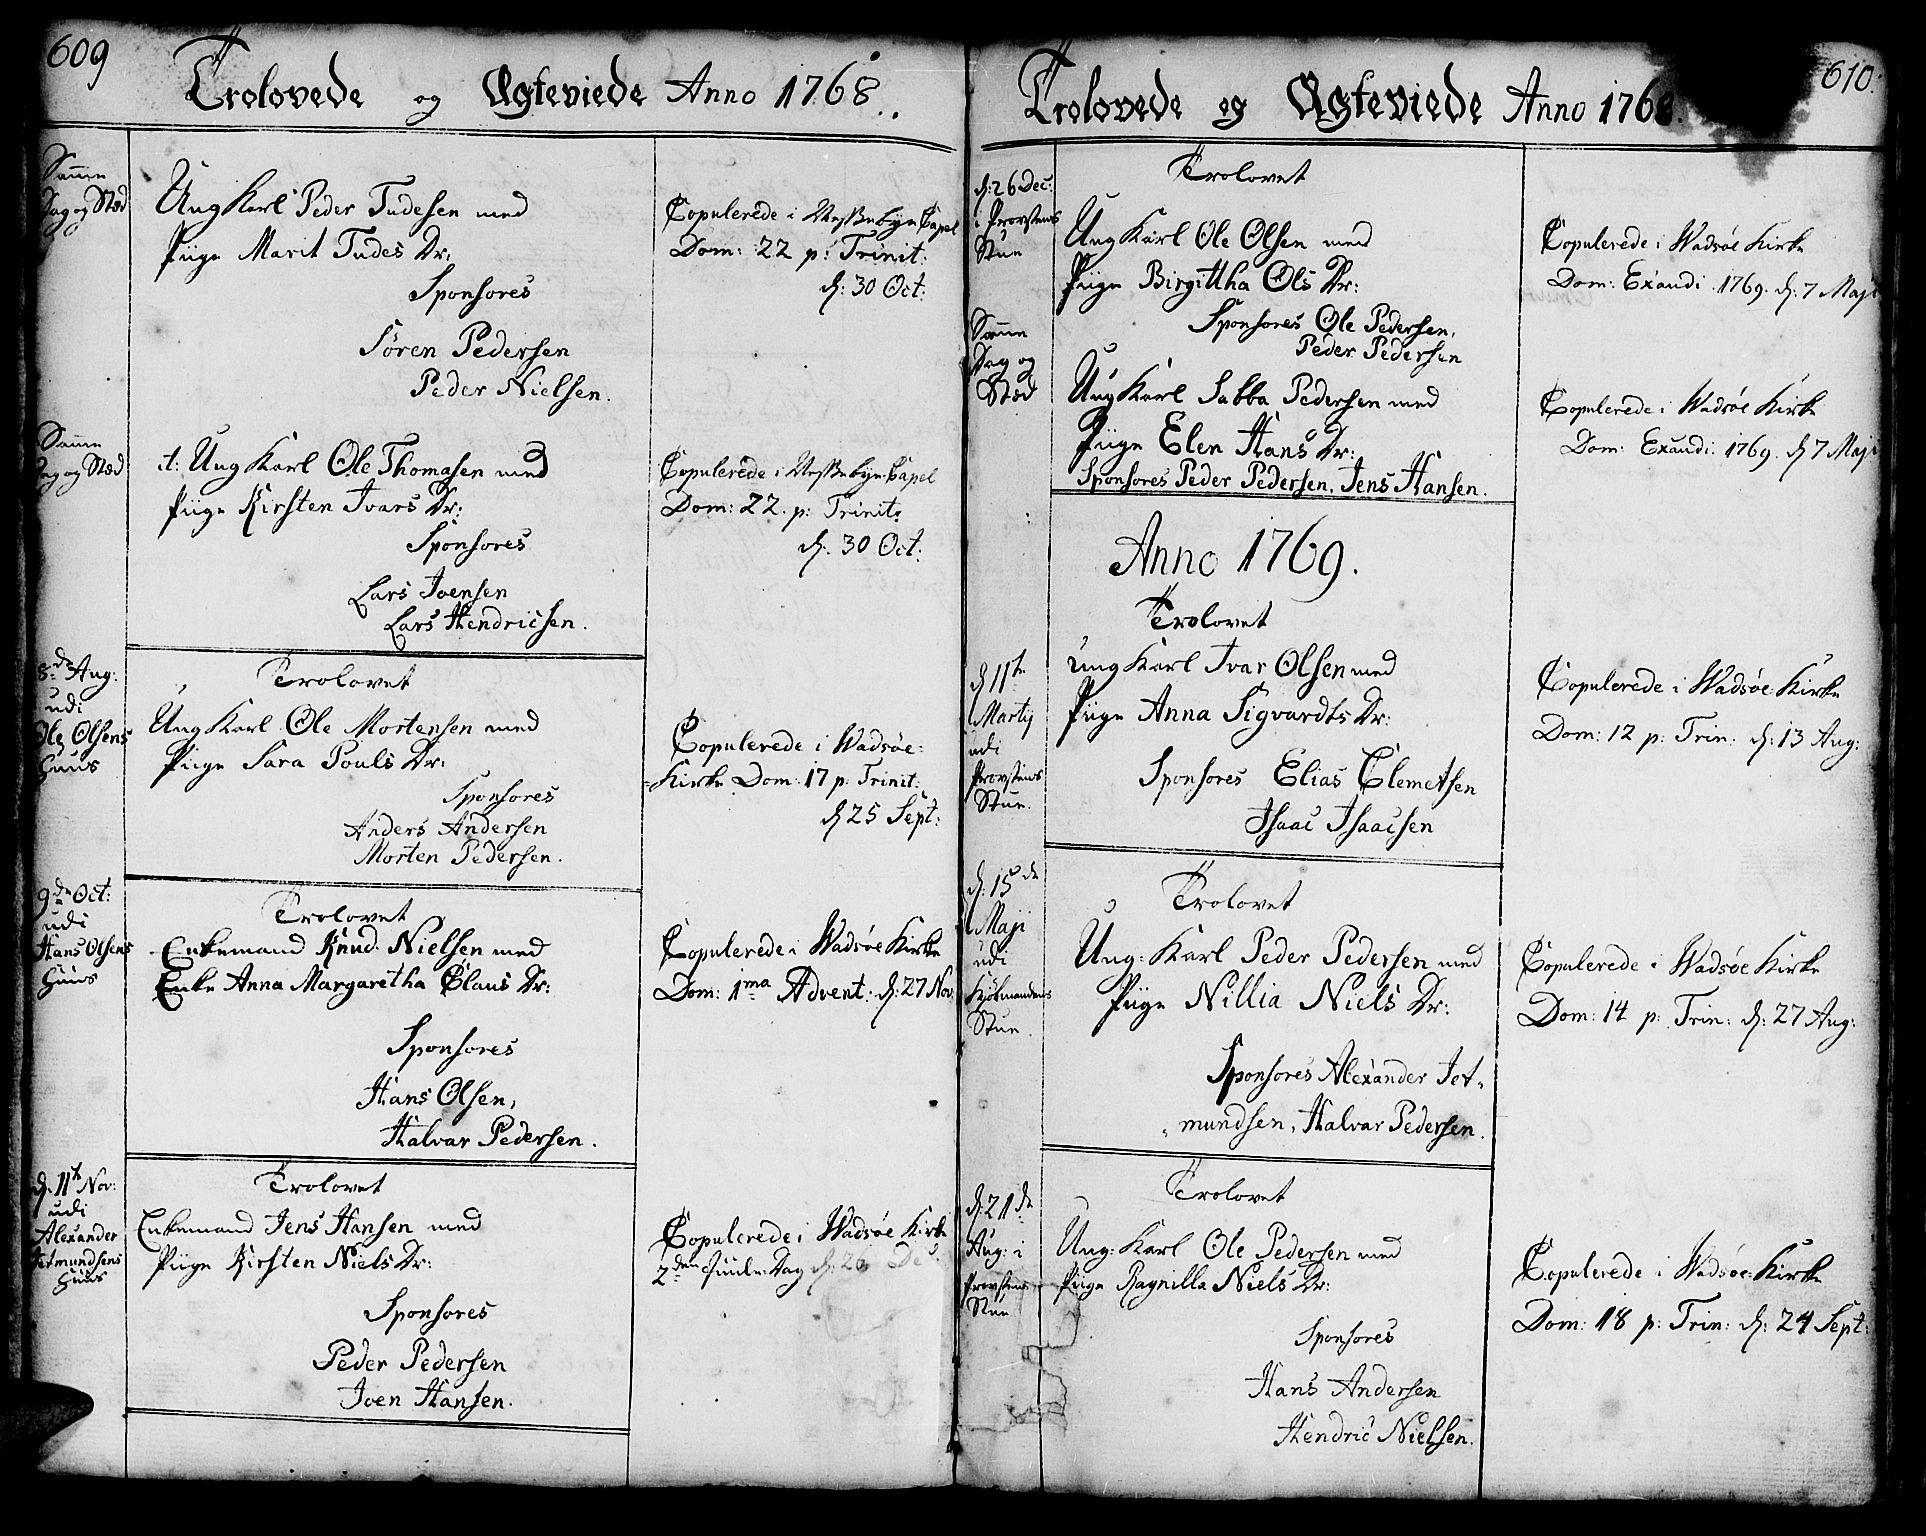 609
Trolovede og Ægteviede Anno 1768.
Samme
Dag og Stæd
Ung Karl Peder Tudesen med
Piige Marit Tudes Dr:
Sponsores
Sören Pedersen
Peder Nielsen.
Copulerede i Capel
Dom: 22 p: Trinit:
d: 30 Oct:
Samme
Dag og Stæd
it: Ung Karl Ole Thomasen med
Piige Kirsten Ivars Dr:
Sponsores
Lars Joensen
Lars Hendricsen.
Copulerede i Capel
Dom: 22. p: Trinit:
d. 30 Oct:
8de Aug:
udi
Ole Olsens
Huus
Trolovet
Ung Karl Ole Mortensen med
Piige Sara Pouls Dr:
Sponsores
Anders Andersen
Morten Pedersen.
Copulerede i Wadsöe-
-Kirke Dom: 17 p: Trinit:
d 25 Sept:
9de Oct:
udi
Hans Olsens
Huus
Trolovet
Enkemand Knud Nielsen med
Enke Anna Margaretha Claus Dr:
Sponsores
Hans Olsen,
Halvar Pedersen.
Copulerede i Wadsöe Kirke
Dom: 1ma Advent: d: 27 Nov:
d. 11te Nov:
udi
Alexander
Jetmundsens
Huus
Trolovet
Enkemand Jens Hansen med
Piige Kirsten Niels Dr:
Sponsores
Peder Pedersen
Joen Hansen.
Copulerede i Wadsöe Kirke
2den Juule Dag d. 26 Dec:
610.
Trolovede og Ægteviede Anno 1768.
d: 26 Dec:
i Provstens
Stue
Trolovet
Ung Karl Ole Olsen med
Piige Birgittha Ols Dr:
Sponsores Ole Pedersen,
Peder Pedersen
Copulerede i Wadsöe Kirke
Dom: Exaudi 1769. d. 7 Maji
Samme
Dag og
Stæd
Ung Karl Sabba Pedersen med
Piige Elen Hans Dr:
Sponsores Peder Pedersen, Jens Hansen.
Copulerede i Wadsöe Kirke
Dom: Exaudi 1769. d 7 Maji
Anno 1769.
d 11te
Martij
udi
Provstens
Stue.
Trolovet
Ung Karl Ivar Olsen med
Piige Anna Sigvardts Dr:
Sponsores Elias Clemetsen
Isaac Isaacsen
Copulerede i Wadsöe Kirke
Dom: 12 p: Trin: d: 13 Aug:
d: 15de
Maji
udi
Kjöbmandens
Stue.
Trolovet
Ung: Karl Peder Pedersen med
Piige Nillia Niels Dr:
Sponsores Alexander Jet-
-mundsen, Halvar Pedersen.
Copulerede i Wadsöe Kirke
Dom: 14 p: Trin: d: 27 Aug:
d: 21de
Aug: i
Provstens
Stue
Trolovet
Ung: Karl Ole Pedersen med
Piige Ragnilla Niels Dr:
Sponsores
Hans Andersen
Hendric Nielsen.
Copulerede i Wadsöe Kirke
Dom: 18 p: Trin: d: 24 Sept: